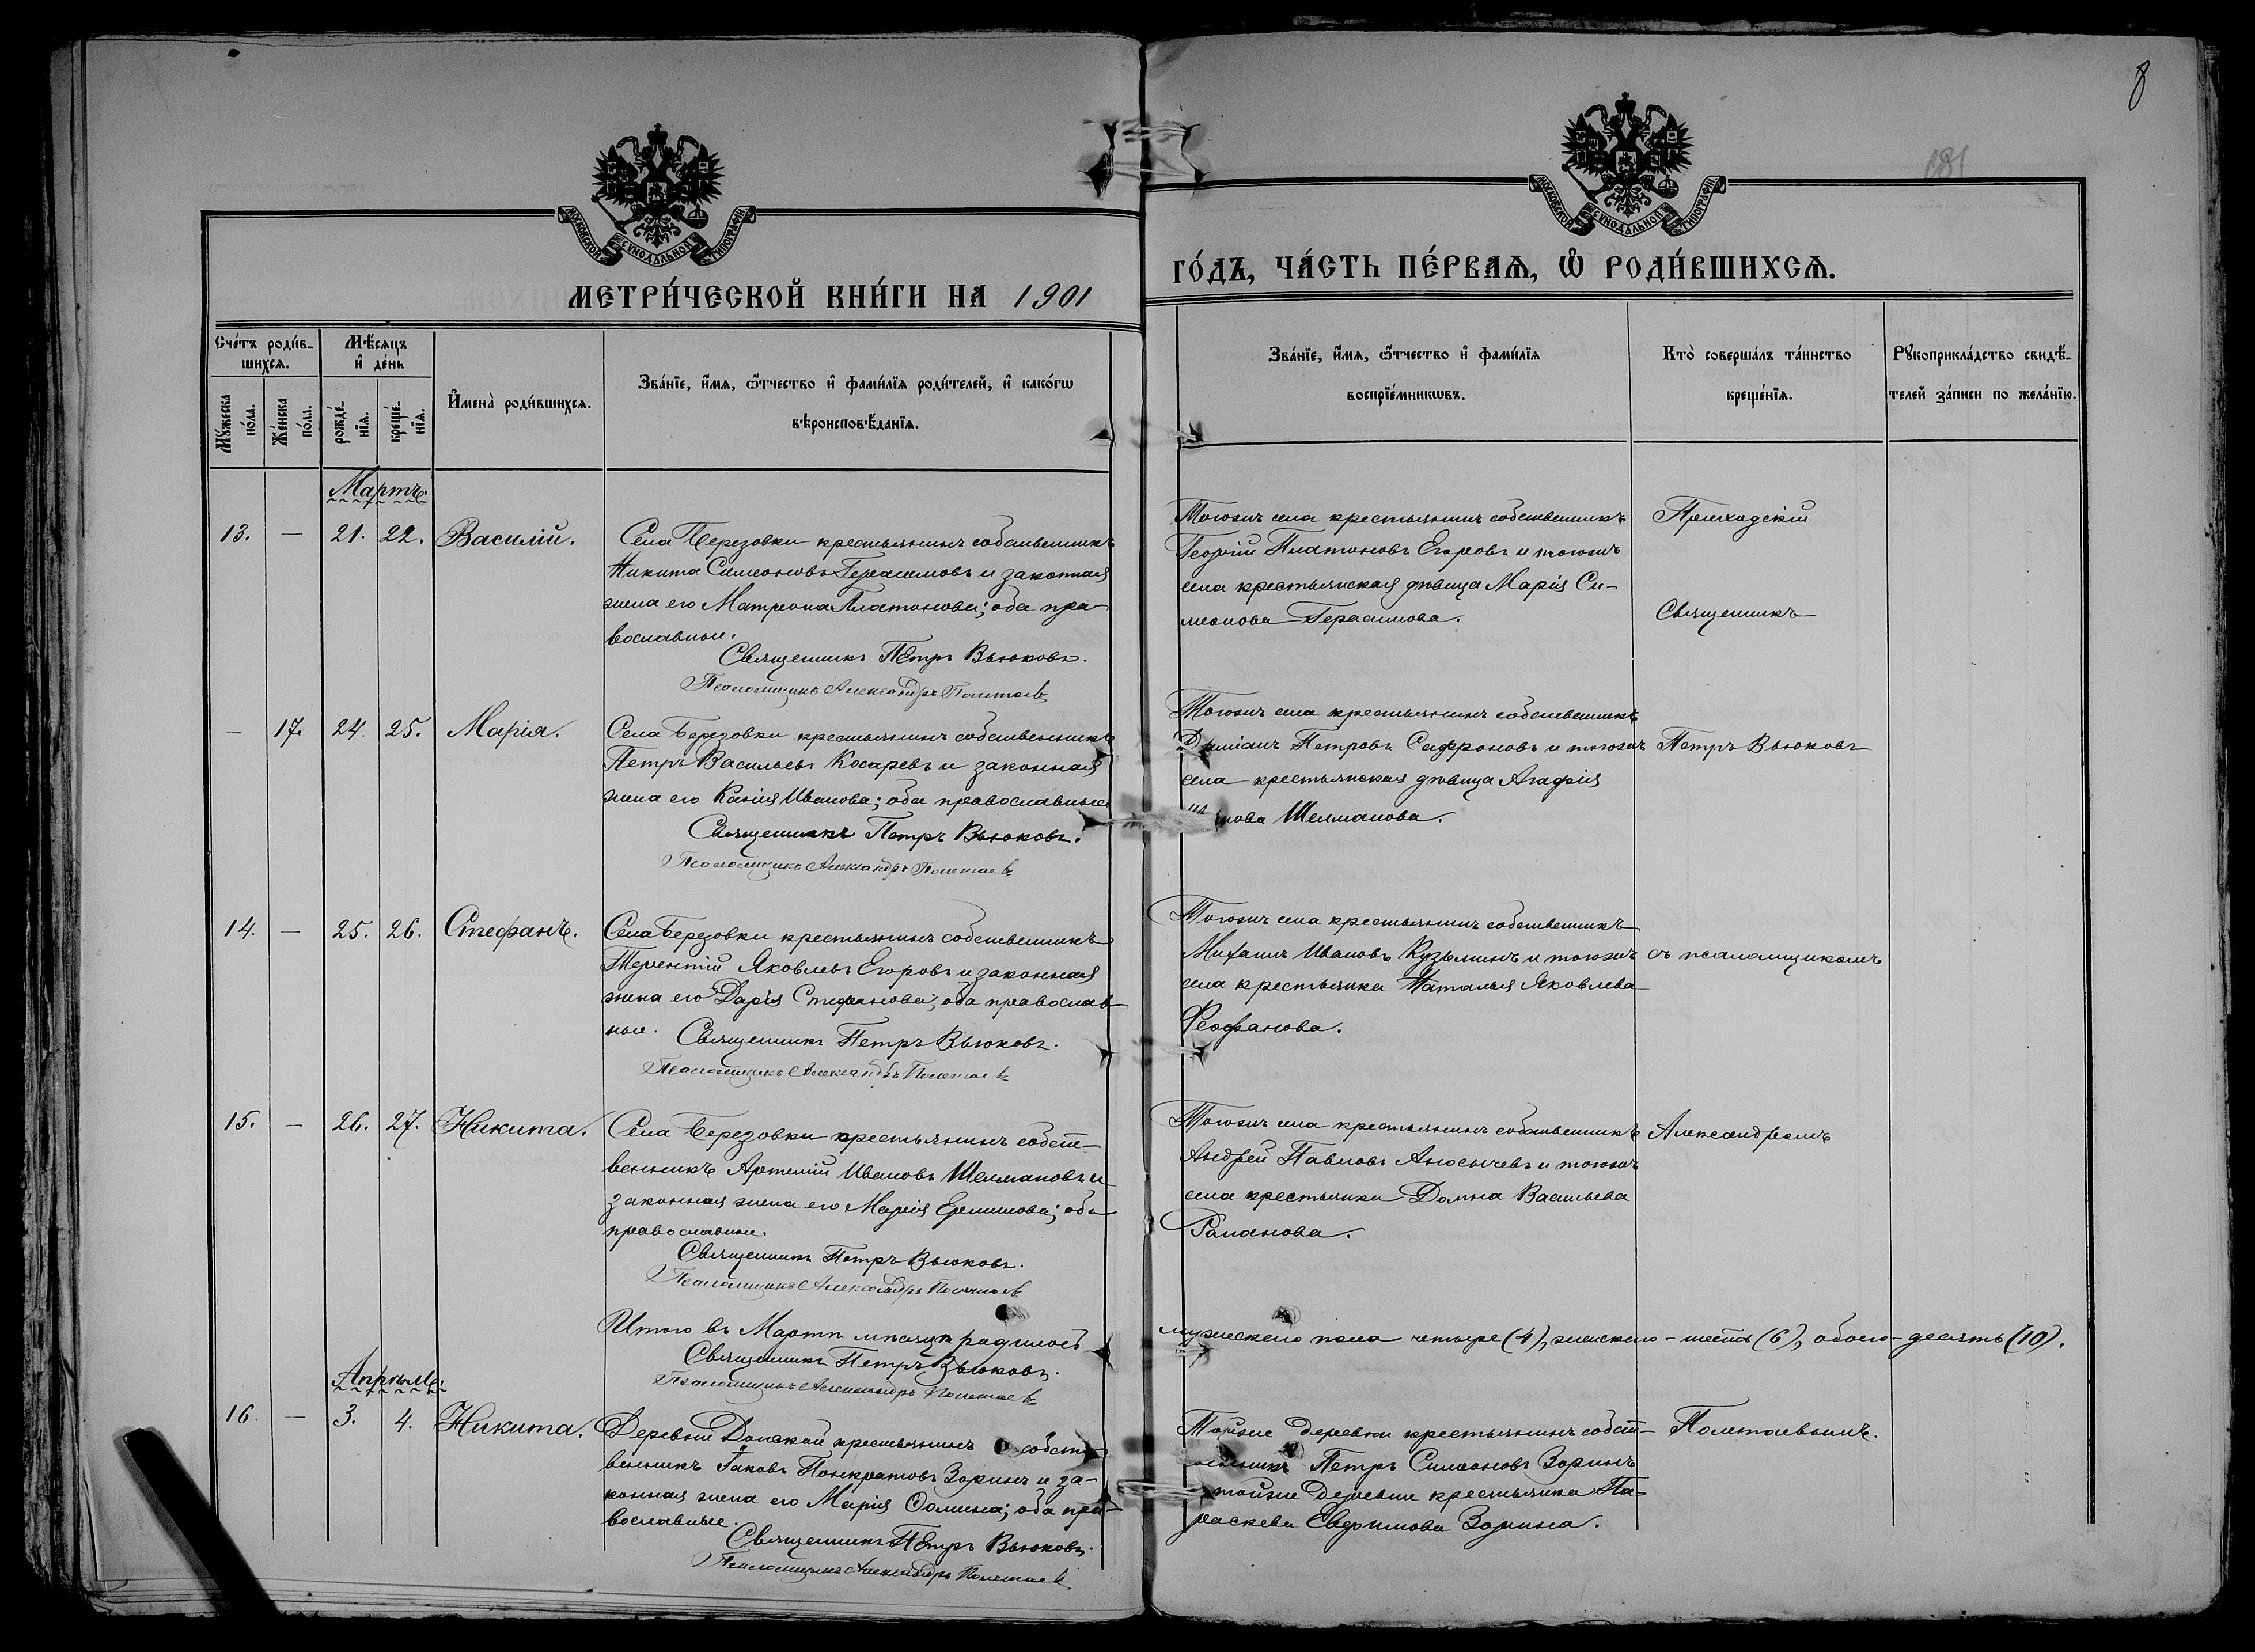 8
181
МОСКОВСКОЙ СУНОДАЛЬНОЙ ТИПОГРАФІИ
МОСКОВСКОЙ СУНОДАЛЬНОЙ ТИПОГРАФІИ
МЕТРИ́ЧЕСКОЙ КНИ́ГИ НА 1901
ГО́ДЪ, ЧА́СТЬ ПЕ́РВАѦ, Ѽ РОДИ́ВШИХСѦ.
Сче́тъ роди́в-
шихсѧ.
Мꙋжеска
по́ла.
Же́нска
по́ла.
Мѣ́сѧцъ
и҆ де́нь
рожде́-
нїѧ.
креще́-
нїѧ.
И҆мена̀ роди́вшихсѧ.
Зва́нїе, и҆́мѧ, ѻ҆́тчество и҆ фами́лїѧ роди́телей, и҆ како́гѡ
вѣроисповѣ́данїѧ.
Зва́нїе, и҆́мѧ, ѻ҆́тчество и҆ фами́лїѧ
воспрїе́мникѡвъ.
Кто̀ соверша́лъ та́инство
креще́нїѧ.
Рꙋкоприкла́дство свидѣ́-
телей за́писи по жела́нїю.
Мартъ.
13. — 21. 22. Василій.
Села Березовки крестьянинъ собственникъ
Никита Симеоновъ Герасимовъ и законная
жена его Матрона Платонова; оба пра-
вославные.
Священникъ Петръ Вьюковъ.
Псаломщикъ Александръ Полетаевъ
Тогожъ села крестьянинъ собственникъ
Георгій Платоновъ Егоровъ и тогожъ
села крестьянская дѣвица Марія Си-
меонова Герасимова.
Приходскій
Священникъ
— 17. 24. 25. Марія.
Села Березовки крестьянинъ собственникъ
Петръ Васильевъ Косаревъ и законная
жена его Ксенія Иванова; оба православные
Священникъ Петръ Вьюковъ.
Псаломщикъ Александръ Полетаевъ
Тогожъ села крестьянинъ собственникъ
Даміанъ Петровъ Сафроновъ и тогожъ
села крестьянская дѣвица Агафія
Шелманова.
Петръ Вьюковъ
14. — 25. 26. Стефанъ.
Села Березовки крестьянинъ собственникъ
Терентій Яковлевъ Егоровъ и законная
жена его Дарія Стефанова; оба православ-
ные.
Священникъ Петръ Вьюковъ.
Псаломщикъ Александръ Полетаевъ
Тогожъ села крестьянинъ собственникъ
Михаилъ Ивановъ Кузьминъ и тогожъ
села крестьянка Наталья Яковлева
Феофанова.
съ псаломщикомъ
15. — 26. 27. Никита.
Села Березовки крестьянинъ собст-
венникъ Артемій Ивановъ Шелмановъ и
законная жена его Марія Ермилова; оба
православные.
Священникъ Петръ Вьюковъ.
Псаломщикъ Александръ Полетаевъ
Тогожъ села крестьянинъ собственникъ
Андрей Павловъ и тогожъ
села крестьянка Домна Васильева
Романова.
Александромъ
Итого въ Мартѣ мѣсяцѣ родилось
мужескаго пола четыре (4), женскаго - шесть (6), обоего - десять (10).
Священникъ Петръ Вьюковъ.
Псаломщикъ Александръ Полетаевъ
Апрѣль.
16. — 3. 4. Никита.
Деревни Донской крестьянинъ собст-
венникъ Іаковъ Панкратовъ Зоринъ и за-
конная жена его Марія Фомина; оба пра-
вославные.
Священникъ Петръ Вьюковъ.
Псаломщикъ Александръ Полетаевъ
Тойже деревни крестьянинъ собст-
венникъ Петръ Симеоновъ Зоринъ
тойже деревни крестьянка Па-
раскева Евфимова Зорина.
Полетаевымъ.